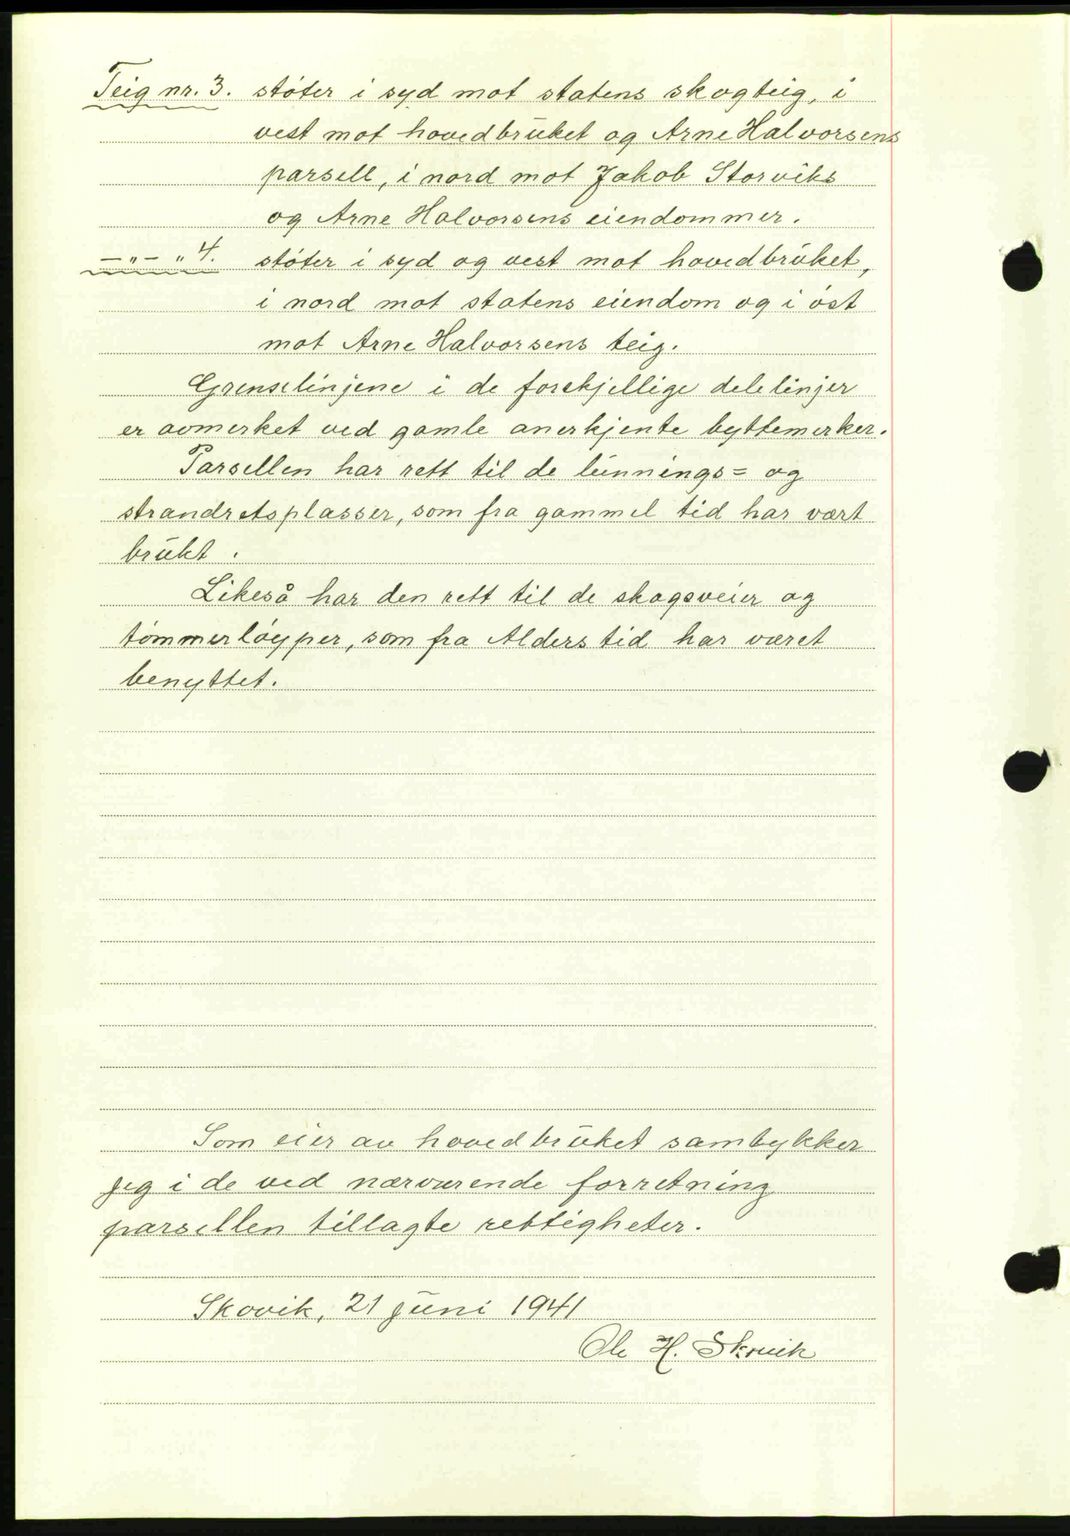 Teig nr. 3. støter i syd mot statens skogteig, i
vest mot hovedbruket og Arne Halvorsens
parsell, i nord mot Jakob Storviks
og Arne Halvorsens eiendommer.
—"— " 4. støter i syd og vest mot hovedbruket,
i nord mot statens eiendom og i øst
mot Arne Halvorsens teig.
Grenselinjene i de forskjellige delelinjer
er avmerket ved gamle anerkjente byttemerker.
Parsellen har rett til de lunnings= og
strandretsplasser, som fra gammel tid har vært
brukt.
Likeså har den rett til de skogsveier og
tømmerløyper, som fra Alders tid har været
benyttet.
Som eier av hovedbruket sambykker
jeg i de ved nærværende forretning
parsellen tillagte rettigheter.
Skovik, 21 juni 1941
Ole H. Skovik